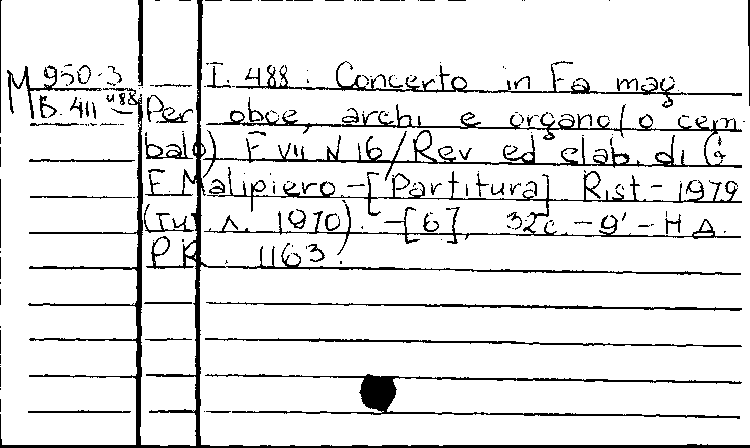 M 950-3 T. 488: Concerto in Fa mag
B. 411 488 Per oboe, archi e organo (o cem-
balo) F VII N 16/Rev ed elab. di G
F. Malipiero - [Partitura] Rist - 1979
(Tut. A. 1970). - [6], 32c. - 9' - H A.
P.R. 1163.